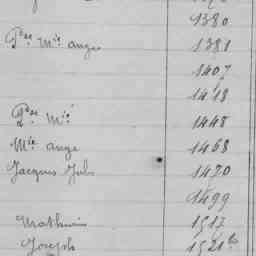 1380
Pre Mie ange 1381
1407
1418
Mie 1448
Mie ange 1468
Jacques Jules 1470
1499
Mathurin 1517
Joseph 1521 bis